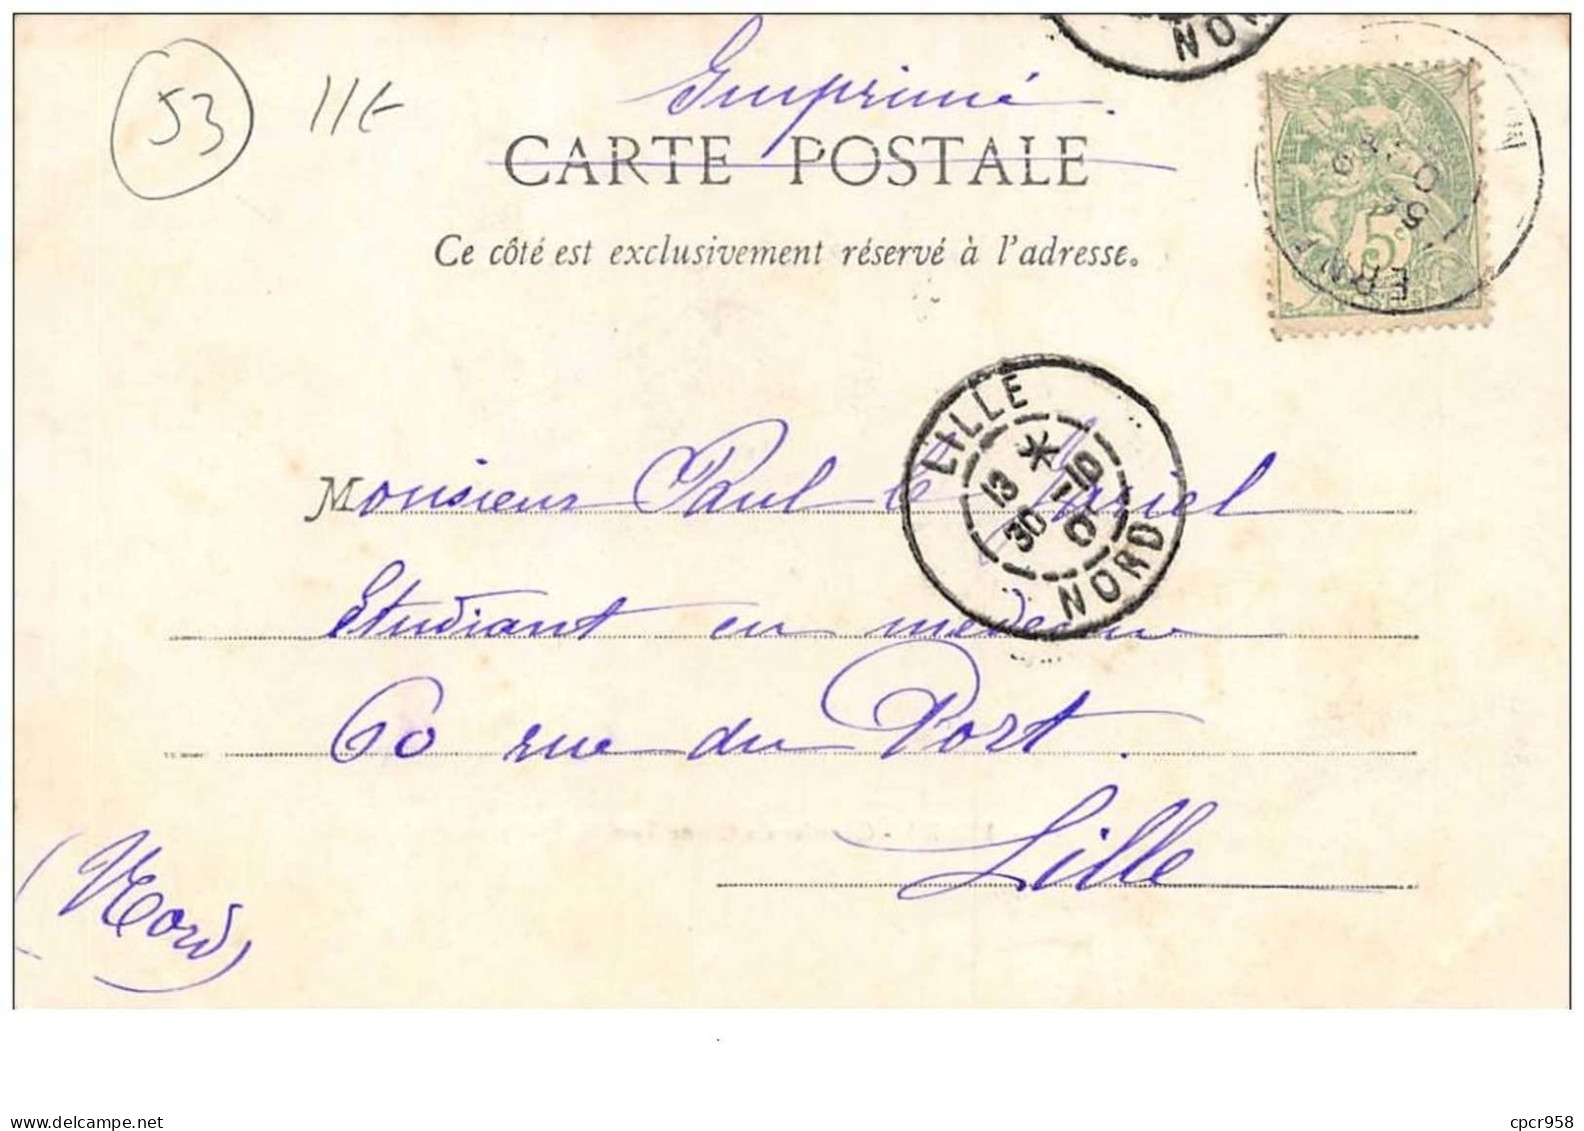 53 11t
NOR
Imprimé.
CARTE POSTALE
Ce côté est exclusivement réservé à l'adresse.
5
LILLE
13 * 30 -10 01
NORD
Monsieur Paul le Mariel
Etudiant en médecine
60 rue du Port.
Lille
(Nord)
cpcr958